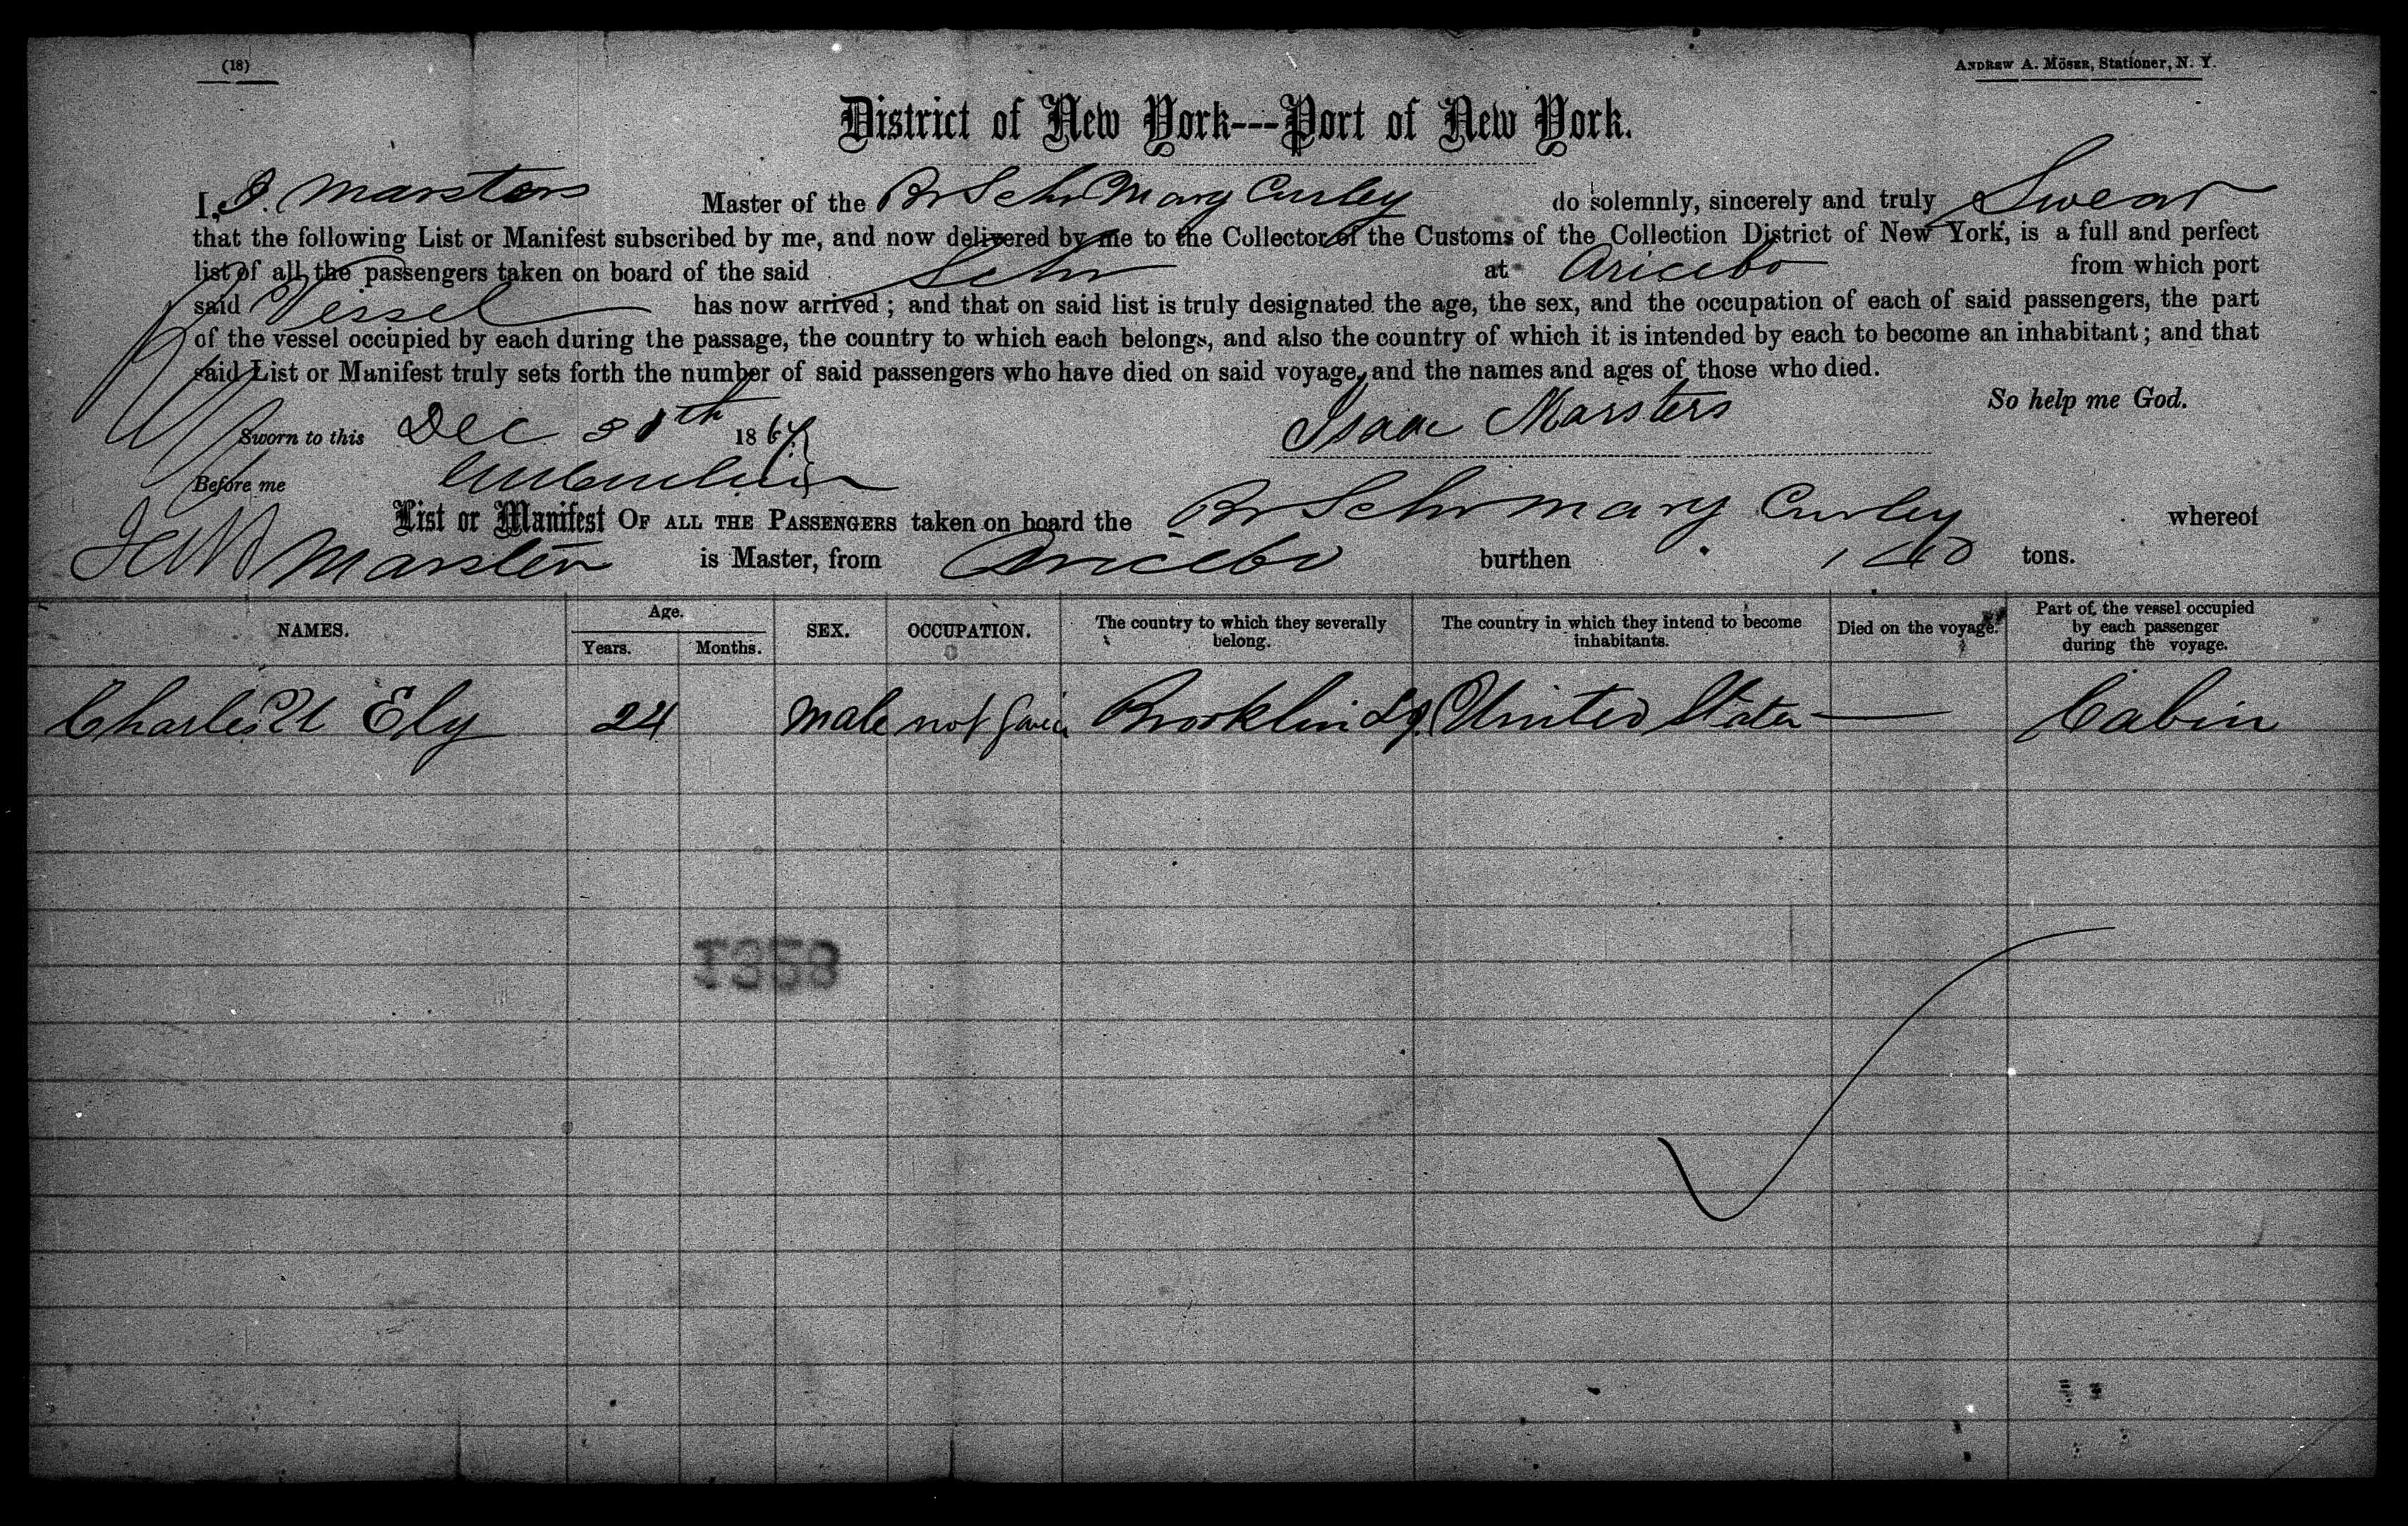 (18)
Andrew A. Möser, Stationer, N. Y.
District of New York---Port of New York.
I, I. Marsters Master of the Br Schr Mary Curley do solemnly, sincerely and truly Swear
that the following List or Manifest subscribed by me, and now delivered by me to the Collector of the Customs of the Collection District of New York, is a full and perfect
list of all the passengers taken on board of the said Schr at Aricebo from which port
said Vessel has now arrived; and that on said list is truly designated the age, the sex, and the occupation of each of said passengers, the part
of the vessel occupied by each during the passage, the country to which each belongs, and also the country of which it is intended by each to become an inhabitant; and that
said List or Manifest truly sets forth the number of said passengers who have died on said voyage, and the names and ages of those who died.
So help me God.
Sworn to this Dec 31th 1867 Isaac Marsters
Before me
List or Manifest OF ALL THE PASSENGERS taken on board the Br Schr Mary Curley whereof
Marsters is Master, from Aricebo burthen 140 tons.
NAMES. Age. Years. Months. SEX. OCCUPATION. The country to which they severally belong. The country in which they intend to become inhabitants. Died on the voyage. Part of the vessel occupied by each passenger during the voyage.
Charles H Ely 24 male not given Brooklin United States — Cabin
1358